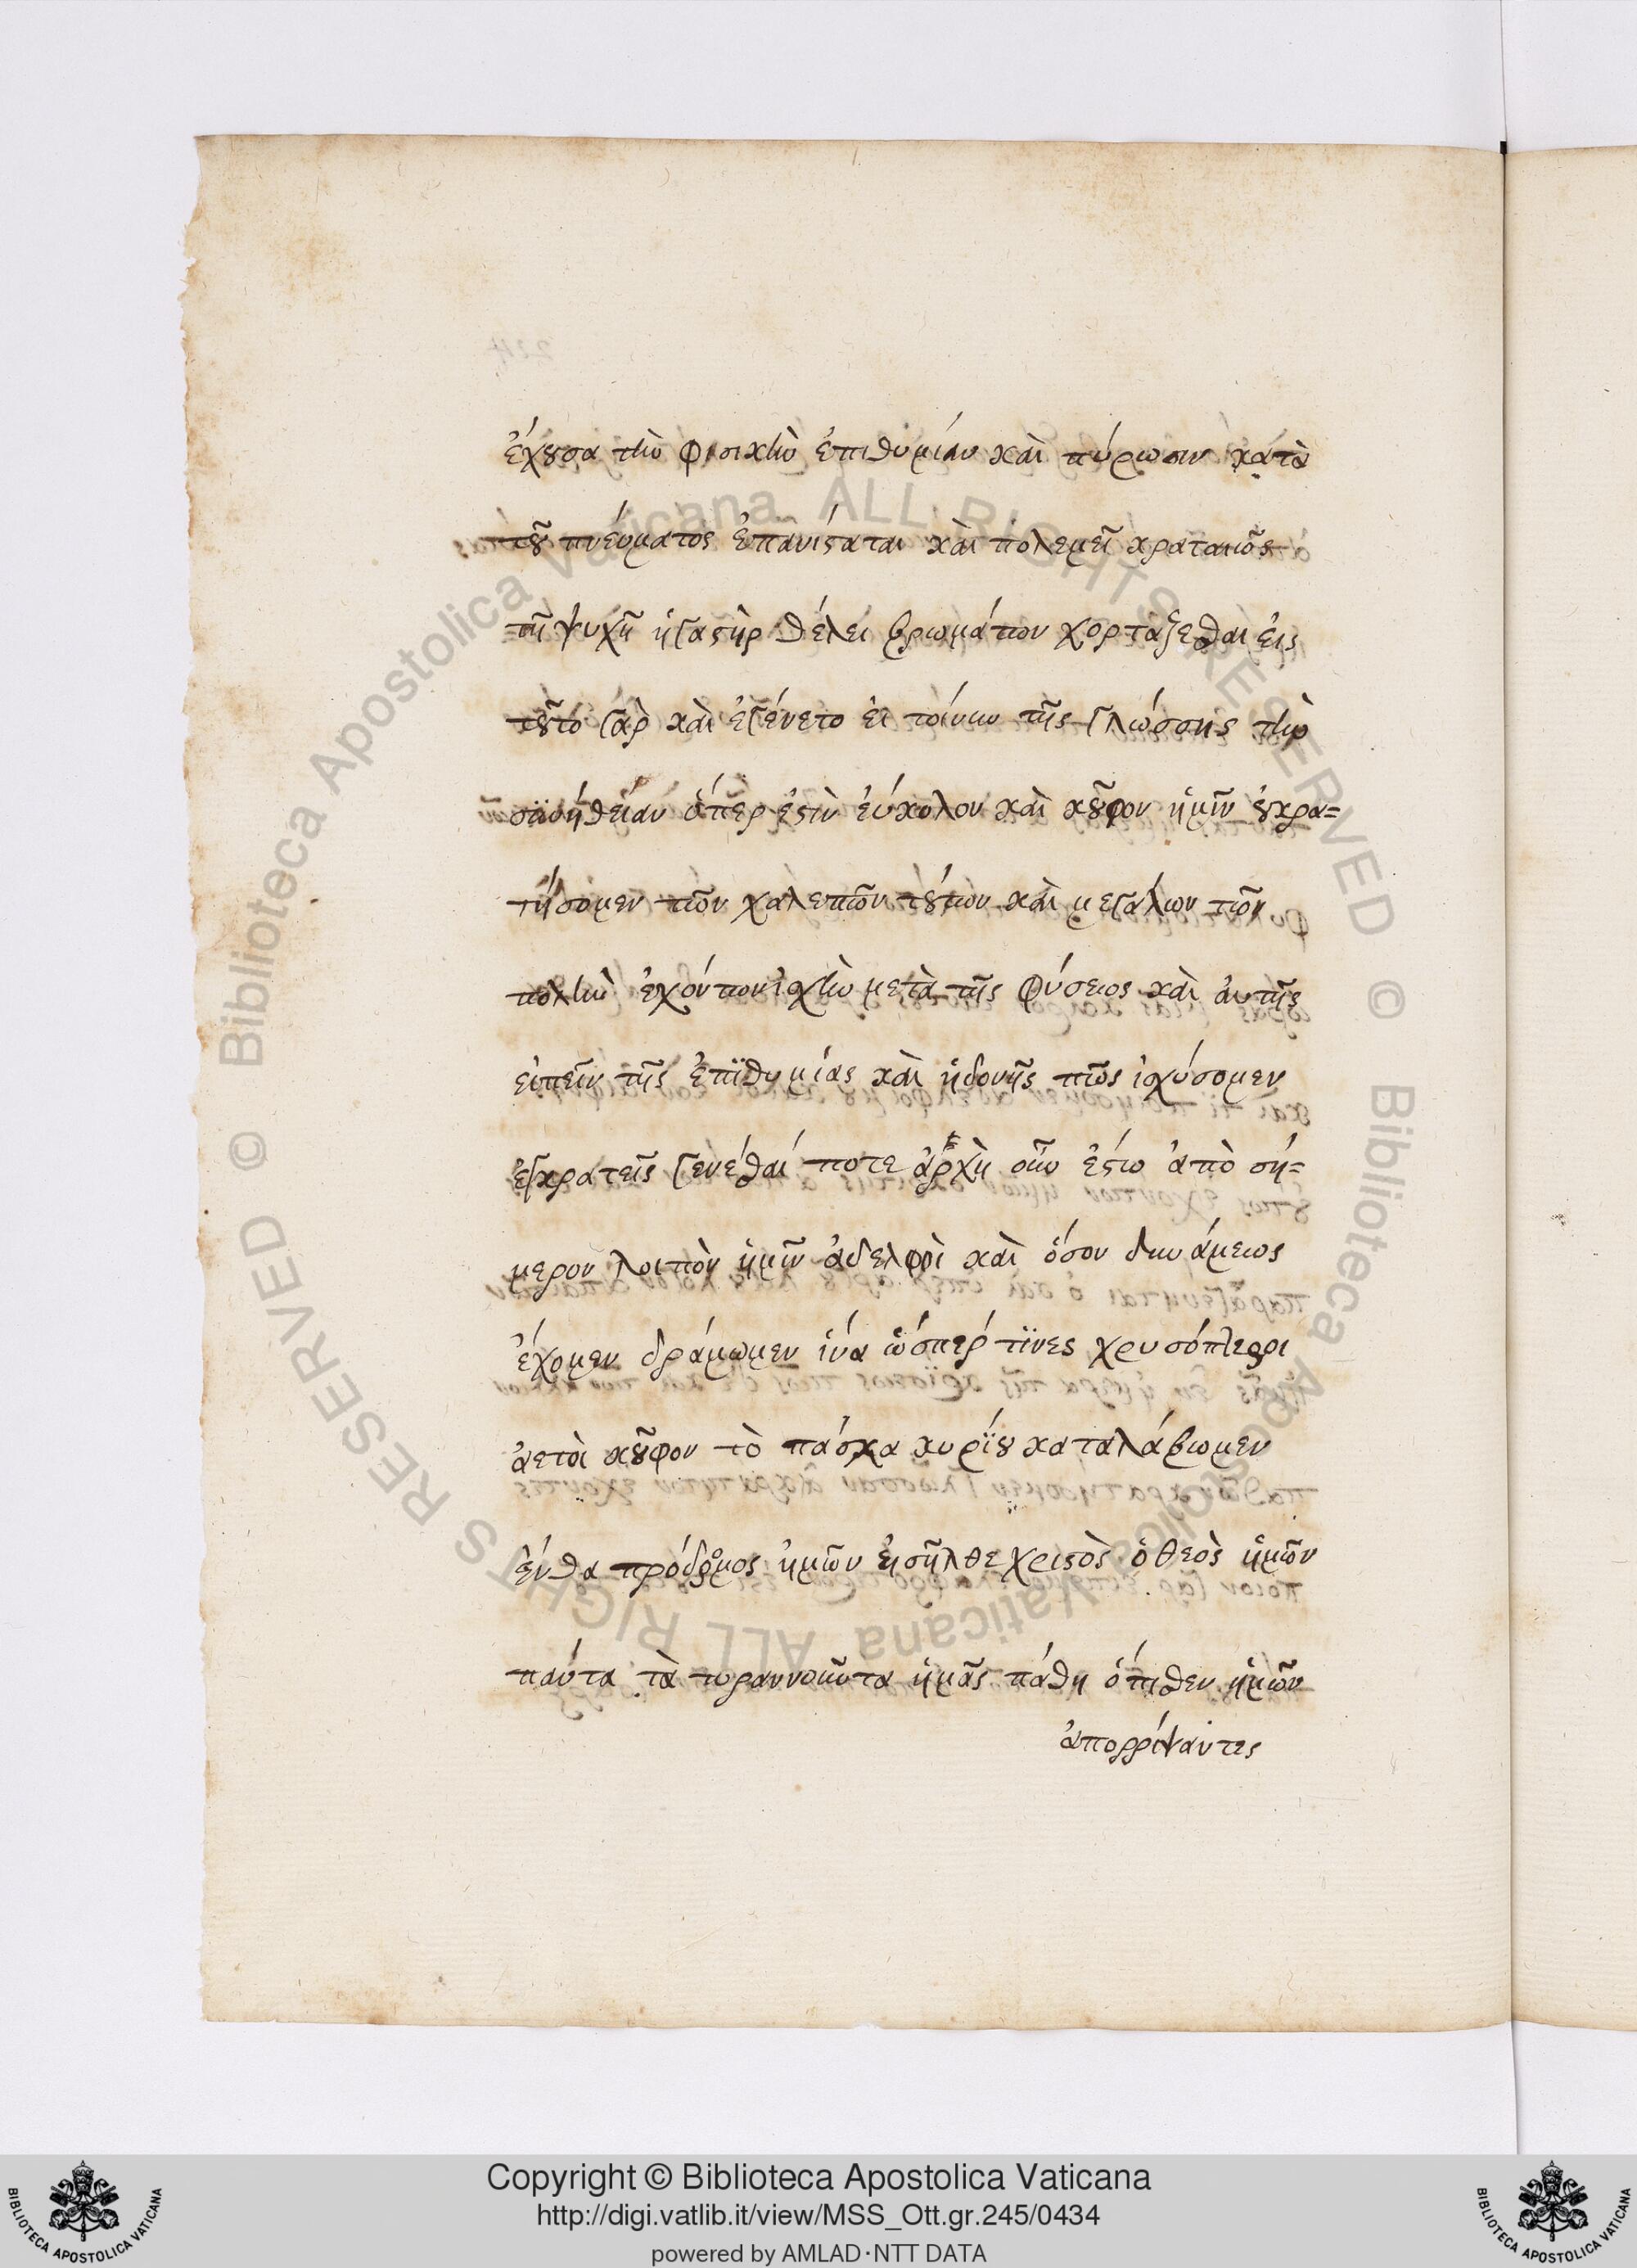 ἔχουσα τὴν φισικὴν ἐπιθυμίαν καὶ πύρωσιν κατὰ
τοῦ πνεύματος ἐπανίσταται καὶ πολεμεῖ κραταιῶς
τῇ ψυχῇ ἡ γαστὴρ θέλει βρωμάτων χορτάζεσθαι εἰς
τοῦτο γὰρ καὶ ἐγένετο εἰ τοίνυν τῆς γλώσσης τὴν
συνήθειαν ὅπερ ἐστὶν εὔκολον καὶ κοῦφον ἡμῖν οὐ κρα=
τήσομεν τῶν χαλεπῶν τούτων καὶ μεγάλων τῶν
πολὴν ἐχόντων ἰσχὴν μετὰ τῆς φύσεως καὶ αὐτῆς
εἰπεῖν τῆς ἐπϊθυμίας καὶ ἡδονῆς πῶς ἰσχύσομεν
ἐγκρατεῖς γενέσθαί ποτε ἀρχὴ οὖν ἔστω ἀπὸ σή=
μερον λοιπὸν ἡμῖν ἀδελφοὶ καὶ ὅσον δυνάμεως
ἔχομεν δράμωμεν ἵνα ὥσπερ τϊνες χρυσόπτεροι
ἀετοὶ κοῦφον τὸ πάσχα κυρΐου καταλάβωμεν
ἔνθα πρόδρομος ἡμῶν εἰσῆλθε χριστὸς ὁ θεὸς ἡμῶν
πάντα τὰ τυραννοῦντα ἡμᾶς πάθη ὄπισθεν ἡμῶν
ἀπορρίψαντες
Copyright © Biblioteca Apostolica Vaticana
http://digi.vatlib.it/view/MSS_Ott.gr.245/0434
powered by AMLAD·NTT DATA
BIBLIOTECA APOSTOLICA VATICANA
BIBLIOTECA APOSTOLICA VATICANA
© Biblioteca Apostolica Vaticana ALL RIGHTS RESERVED
© Biblioteca Apostolica Vaticana ALL RIGHTS RESERVED